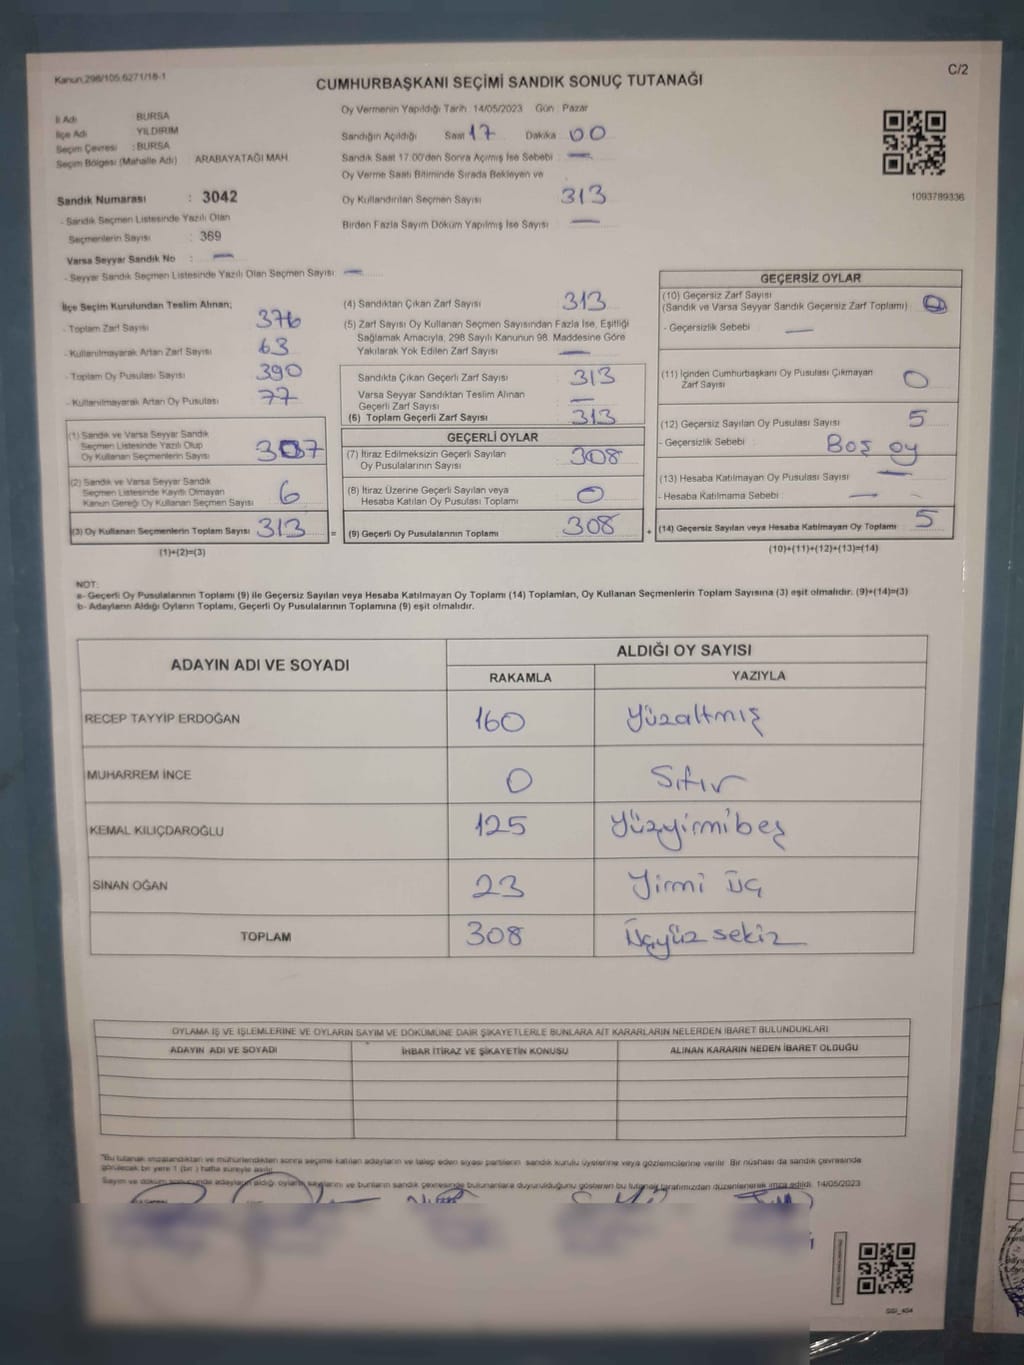 Kanun.298/105.6271/18-1
C/2
CUMHURBAŞKANI SEÇİMİ SANDIK SONUÇ TUTANAĞI
İl Adı BURSA
İlçe Adı YILDIRIM
Seçim Çevresi : BURSA
Seçim Bölgesi (Mahalle Adı) ARABAYATAĞI MAH.
Sandık Numarası : 3042
- Sandık Seçmen Listesinde Yazılı Olan
Seçmenlerin Sayısı : 369
Varsa Seyyar Sandık No : —
- Seyyar Sandık Seçmen Listesinde Yazılı Olan Seçmen Sayısı: —
Oy Vermenin Yapıldığı Tarih 14/05/2023 Gün Pazar
Sandığın Açıldığı Saat 17 Dakika 00
Sandık Saat 17.00'den Sonra Açılmış İse Sebebi —
Oy Verme Saati Bitiminde Sırada Bekleyen ve
Oy Kullandırılan Seçmen Sayısı 313
Birden Fazla Sayım Döküm Yapılmış İse Sayısı —
1093789336
İlçe Seçim Kurulundan Teslim Alınan;
- Toplam Zarf Sayısı 376
- Kullanılmayarak Artan Zarf Sayısı 63
- Toplam Oy Pusulası Sayısı 390
- Kullanılmayarak Artan Oy Pusulası 77
(1) Sandık ve Varsa Seyyar Sandık
Seçmen Listesinde Yazılı Olup
Oy Kullanan Seçmenlerin Sayısı 307
(2) Sandık ve Varsa Seyyar Sandık
Seçmen Listesinde Kayıtlı Olmayan
Kanun Gereği Oy Kullanan Seçmen Sayısı 6
(3) Oy Kullanan Seçmenlerin Toplam Sayısı 313 =
(1)+(2)=(3)
(4) Sandıktan Çıkan Zarf Sayısı 313
(5) Zarf Sayısı Oy Kullanan Seçmen Sayısından Fazla İse, Eşitliği
Sağlamak Amacıyla, 298 Sayılı Kanunun 98. Maddesine Göre
Yakılarak Yok Edilen Zarf Sayısı —
Sandıkta Çıkan Geçerli Zarf Sayısı 313
Varsa Seyyar Sandıktan Teslim Alınan
Geçerli Zarf Sayısı —
(6) Toplam Geçerli Zarf Sayısı 313
GEÇERLİ OYLAR
(7) İtiraz Edilmeksizin Geçerli Sayılan
Oy Pusulalarının Sayısı 308
(8) İtiraz Üzerine Geçerli Sayılan veya
Hesaba Katılan Oy Pusulası Toplamı 0
(9) Geçerli Oy Pusulalarının Toplamı 308 +
GEÇERSİZ OYLAR
(10) Geçersiz Zarf Sayısı
(Sandık ve Varsa Seyyar Sandık Geçersiz Zarf Toplamı) 0
- Geçersizlik Sebebi —
(11) İçinden Cumhurbaşkanı Oy Pusulası Çıkmayan
Zarf Sayısı 0
(12) Geçersiz Sayılan Oy Pusulası Sayısı 5
- Geçersizlik Sebebi Boş oy
(13) Hesaba Katılmayan Oy Pusulası Sayısı —
- Hesaba Katılmama Sebebi —
(14) Geçersiz Sayılan veya Hesaba Katılmayan Oy Toplamı 5
(10)+(11)+(12)+(13)=(14)
NOT:
a- Geçerli Oy Pusulalarının Toplamı (9) ile Geçersiz Sayılan veya Hesaba Katılmayan Oy Toplamı (14) Toplamları, Oy Kullanan Seçmenlerin Toplam Sayısına (3) eşit olmalıdır. (9)+(14)=(3)
b- Adayların Aldığı Oyların Toplamı, Geçerli Oy Pusulalarının Toplamına (9) eşit olmalıdır.
ADAYIN ADI VE SOYADI
ALDIĞI OY SAYISI
RAKAMLA YAZIYLA
RECEP TAYYİP ERDOĞAN 160 Yüzaltmış
MUHARREM İNCE 0 Sıfır
KEMAL KILIÇDAROĞLU 125 Yüzyirmibeş
SİNAN OĞAN 23 Yirmi üç
TOPLAM 308 Üçyüz sekiz
OYLAMA İŞ VE İŞLEMLERİNE VE OYLARIN SAYIM VE DÖKÜMÜNE DAİR ŞİKAYETLERLE BUNLARA AİT KARARLARIN NELERDEN İBARET BULUNDUKLARI
ADAYIN ADI VE SOYADI İHBAR İTİRAZ VE ŞİKAYETİN KONUSU ALINAN KARARIN NEDEN İBARET OLDUĞU
"Bu tutanak imzalandıktan ve mühürlendikten sonra seçime katılan adayların ve talep eden siyasi partilerin sandık kurulu üyelerine veya gözlemcilerine verilir. Bir nüshası da sandık çevresinde
görülecek bir yere 1 (bir ) hafta süreyle asılır.
Sayım ve döküm sonucunda adayların aldığı oyların sayılarını ve bunların sandık çevresinde bulunanlara duyurulduğunu gösteren bu tutanak tarafımızdan düzenlenerek imza edildi. 14/05/2023